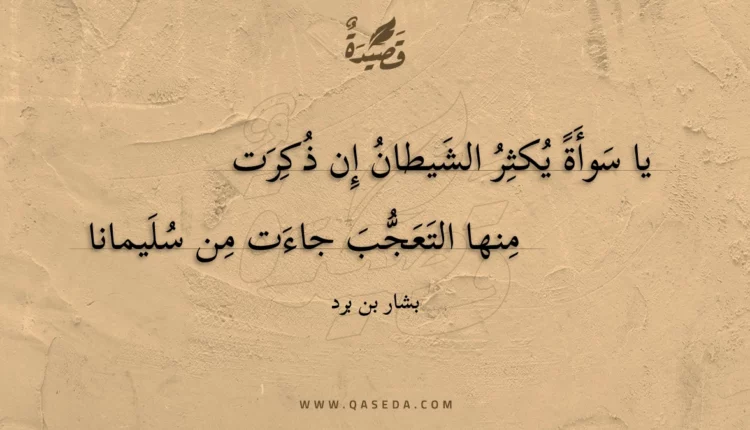 قَصِيدَةٌ
يا سَوأَةً يُكثِرُ الشَيطانُ إِن ذُكِرَت
مِنها التَعَجُّبَ جاءَت مِن سُلَيمانا
بشار بن برد
WWW.QASEDA.COM